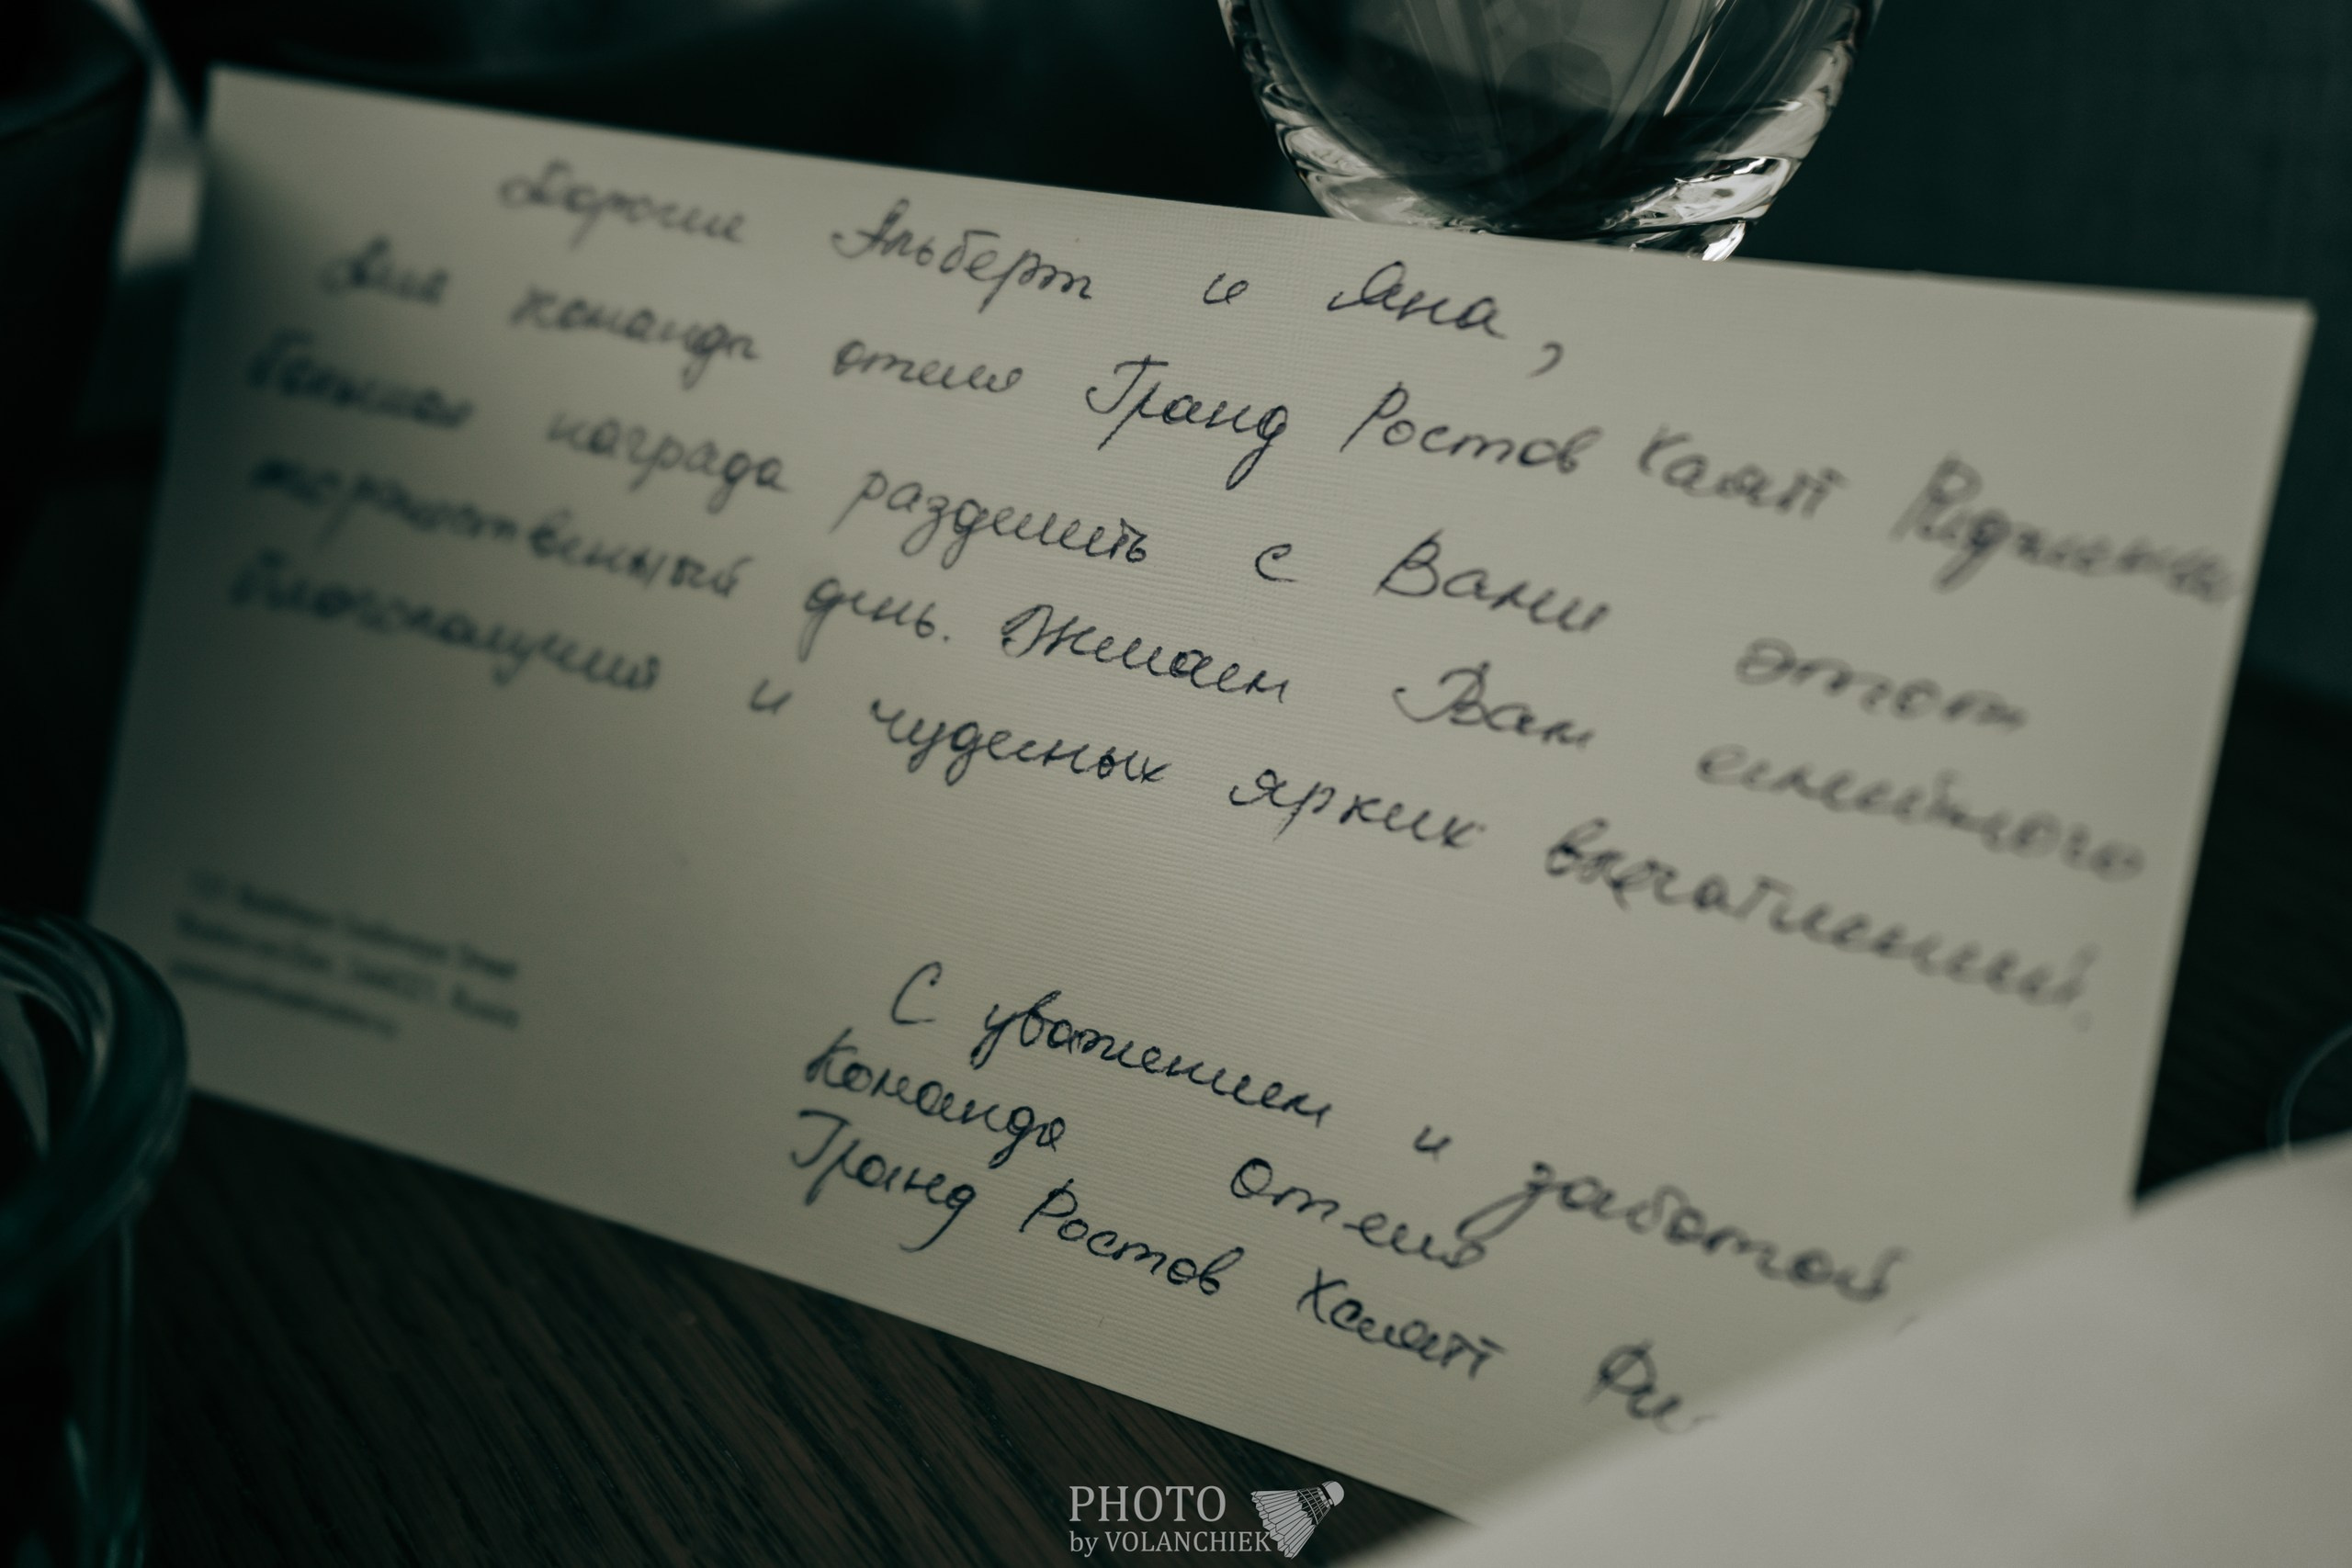 Дорогие Альберт и Яна,
Для команды отеля Гранд Ростов Хаятт Ридженси
большая награда разделить с Вами этот
торжественный день. Желаем Вам семейного
благополучия и чудесных ярких впечатлений!
С уважением и заботой,
Команда отеля
Гранд Ростов Хаятт Ри
PHOTO
by VOLANCHIEK